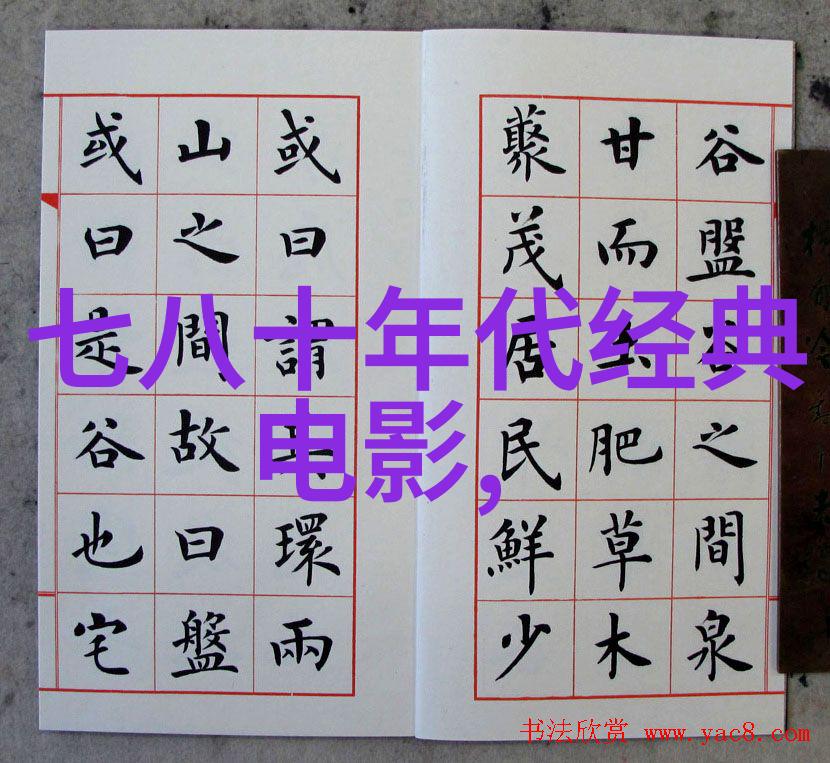 谷盤谷之間泉
甘而土肥草木
藂茂居民鮮少
或曰謂其環兩
山之間故曰盤
或曰是谷也宅
七八十年代经典
电影,
书法欣赏 www.yac8.com